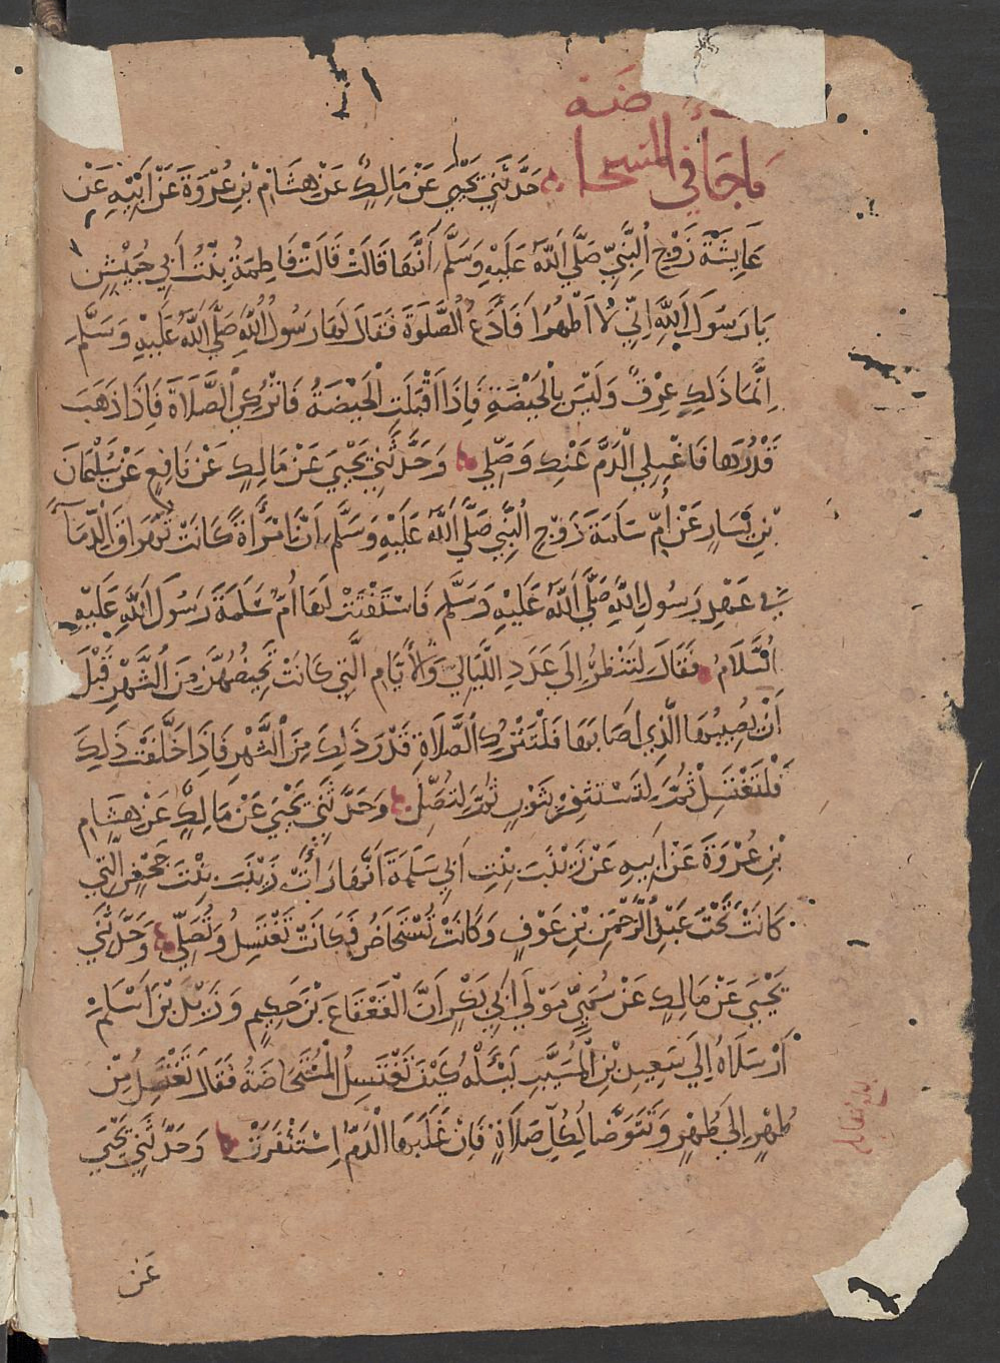 ما جاء في المستحاضة حَدَّثَنِي يَحْيَى عَنْ مَالِكٍ عَنْ هِشَامِ بْنِ عُرْوَةَ عَنْ أَبِيهِ عَنْ
عَايِشَةَ زَوْجِ النَّبِيِّ صَلَّى اللَّهُ عَلَيْهِ وَسَلَّمَ أَنَّهَا قَالَتْ قَالَتْ فَاطِمَةُ بِنْتُ أَبِي حُبَيْشٍ
يَا رَسُولَ اللَّهِ إِنِّي لَا أَطْهُرُ أَفَأَدَعُ الصَّلَوةَ فَقَالَ لَهَا رَسُولُ اللَّهِ صَلَّى اللَّهُ عَلَيْهِ وَسَلَّمَ
إِنَّمَا ذَلِكِ عِرْقٌ وَلَيْسَ بِالْحَيْضَةِ فَإِذَا أَقْبَلَتِ الْحَيْضَةُ فَاتْرُكِي الصَّلَاةَ فَإِذَا ذَهَبَ
قَدْرُهَا فَاغْسِلِي الدَّمَ عَنْكِ وَصَلِّي وَحَدَّثَنِي يَحْيَى عَنْ مَالِكٍ عَنْ نَافِعٍ عَنْ سُلَيْمَانَ
بْنِ يَسَارٍ عَنْ أُمِّ سَلَمَةَ زَوْجِ النَّبِيِّ صَلَّى اللَّهُ عَلَيْهِ وَسَلَّمَ أَنَّ امْرَأَةً كَانَتْ تُهَرَاقُ الدِّمَآ
فِي عَهْدِ رَسُولِ اللَّهِ صَلَّى اللَّهُ عَلَيْهِ وَسَلَّمَ فَاسْتَفْتَتْ لَهَا أُمُّ سَلَمَةَ رَسُولَ اللَّهِ عَلَيْهِ
السَّلَامُ فَقَالَ لِتَنْظُرْ إِلَى عَدَدِ اللَّيَالِي وَالْأَيَّامِ الَّتِي كَانَتْ تَحِيضُهُنَّ مِنَ الشَّهْرِ قَبْلَ
أَنْ يُصِيبَهَا الَّذِي أَصَابَهَا فَلْتَتْرُكِ الصَّلَاةَ قَدْرَ ذَلِكَ مِنَ الشَّهْرِ فَإِذَا خَلَّفَتْ ذَلِكَ
فَلْتَغْتَسِلْ ثُمَّ لِتَسْتَثْفِرْ بِثَوْبٍ ثُمَّ لِتُصَلِّ وَحَدَّثَنِي يَحْيَى عَنْ مَالِكٍ عَنْ هِشَامِ
بْنِ عُرْوَةَ عَنْ أَبِيهِ عَنْ زَيْنَبَ بِنْتِ أَبِي سَلَمَةَ أَنَّهَا رَأَتْ زَيْنَبَ بِنْتَ جَحْشٍ الَّتِي
كَانَتْ تَحْتَ عَبْدِ الرَّحْمَنِ بْنِ عَوْفٍ وَكَانَتْ تُسْتَحَاضُ فَكَانَتْ تَغْتَسِلُ وَتُصَلِّي وَحَدَّثَنِي
يَحْيَى عَنْ مَالِكٍ عَنْ سُمَيٍّ مَوْلَى أَبِي بَكْرٍ أَنَّ الْقَعْقَاعَ بْنَ حَكِيمٍ وَزَيْدَ بْنَ أَسْلَمَ
أَرْسَلَاهُ إِلَى سَعِيدِ بْنِ الْمُسَيَّبِ يَسْئَلُهُ كَيْفَ تَغْتَسِلُ الْمُسْتَحَاضَةُ فَقَالَ تَغْتَسِلُ مِنْ
طُهْرٍ إِلَى طُهْرٍ وَتَتَوَضَّأُ لِكُلِّ صَلَاةٍ فَإِنْ غَلَبَهَا الدَّمُ اسْتَثْفَرَتْ وَحَدَّثَنِي يَحْيَى
عَن